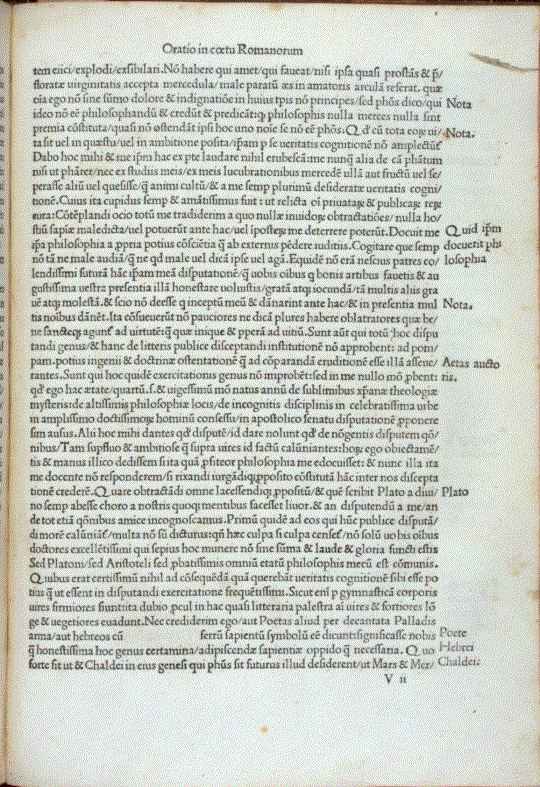 Oratio in cœtu Romanorum
tem eiici/explodi/exsibilari. Nō habere qui amet/qui faueat/nisi ipsa quasi prostās & p̄/
floratæ uirginitatis accepta mercedula/male partū æs in amatoris arculā referat. quæ
oīa ego nō sine sūmo dolore & indignatiōe in huius tp̄is nō principes/sed phōs dico/qui
Nota
ideo nō eē philosophandū & credūt & prædicāt/ philosophis nulla merces nulla sint
premia cōstituta/quasi nō ostendāt ipsi hoc uno noīe se nō eē phōs. Q d' cū tota eoꝝ ui/
Nota.
ta sit uel in quæstu/uel in ambitione posita/ipsam p̄ se ueritatis cognitionē nō amplectūt'
Dabo hoc mihi & me ipm̄ hac ex pte laudare nihil erubescā:me nunq̄ alia de cā phātum
nisi ut phārer/nec ex studiis meis/ex meis lucubrationibus mercedē ullā aut fructū uel se/
perasse aliū uel quesisse/q̄ animi cultū/& a me semp plurimū desideratæ ueritatis cogni/
tionē. Cuius ita cupidus semp & amātissimus fui : ut relicta oī priuataꝝ & publicaꝝ reꝝ
cura: Cōtēplandi ocio totū me tradiderim a quo nullæ inuidoꝝ obtractatiōes/nulla ho/
stiū sapiæ maledicta/uel potuerūt ante hac/uel iposteꝝ me deterrere poterūt. Docuit me
Quid ipm̄
ipa philosophia a ppria potius cōsciētia q̄ ab externis pēdere iudiciis. Cogitare que semp
docuerit phi
nō tā ne male audiā/q̄ ne qd male uel dicā ipse uel agā. Equidē nō erā nescius patres co/
losophia
lendissimi futurā hāc ipsam meā disputationē/q̄ uobis oībus q bonis artibus fauetis & au
gustissima uestra presentia illā honestare uoluistis/gratā atq; iocundā/tā multis aliis gra
uē atq; molestā. & scio nō deesse q inceptū meū & dānarint ante hac/& in presentia mul
Nota.
tis noībus dānēt. Ita cōsueuerūt nō pauciores ne dicā plures habere oblatratores quæ be/
ne sancteq; agunt' ad uirtutē: q̄ quæ inique & pperā ad uitiū. Sunt aūt qui totū hoc dispu
tandi genus/& hanc de litteris publice disceptandi institutionē nō approbent: ad pom/
pam potius ingenii & doctrinæ ostentationē q̄ ad cōparandā eruditionē esse illā asseue/
Aetas aucto
rantes. Sunt qui hoc quidē exercitationis genus nō improbēt:sed in me nullo mō pbent:
ris.
qd' ego hac ætate/quartū.s.& uigessimū mō natus annū de sublimibus xp̄anæ theologiæ
mysteriis:de altissimis philosophiæ locis/de incognitis disciplinis in celebratissima urbe
in amplissimo doctissimoꝝ hominū consessu/in apostolico senatu disputationē pponere
sim ausus. Alii hoc mihi dantes qd' disputē/id dare nolunt qd' de nōgentis disputem qō/
nibus/Tam supfluo & ambitiose q̄ supra uires id factū calūniantes:hoꝝ ego obiectamē/
tis & manus illico dedissem si ita quā pfiteor philosophia me edocuisset: & nunc illa ita
me docente nō responderem/si rixandi iurgādiq;pposito cōstitutā hāc inter nos discepta
tionē crederē. Quare obtractādi omne lacessendiq; ppositū/& quē scribit Plato a diui/
Plato
no semp abesse choro a nostris quoq;mentibus facesset liuor. & an disputendū a me/an
de tot etiā qōnibus amice incognoscamus. Primū quidē ad eos qui hūc publice disputā/
di morē calūniāt'/multa nō sū dicturus:qn̄ hæc culpa si culpa censet'/nō solū uobis oībus
doctores excellētissimi qui sepius hoc munere nō sine sūma & laude & gloria functi estis
Sed Platoni/sed Aristoteli sed pbatissimis omniū etatū philosophis mecū est cōmunis.
Quibus erat certissimū nihil ad cōsequēdā quā querebāt ueritatis cognitionē sibi esse po
tius q̄ ut essent in disputandi exercitatione frequētissimi. Sicut enī p gymnasticā corporis
uires firmiores fiunt:ita dubio pcul in hac quasi litteraria palestra aī uires & fortiores lō
ge & uegetiores euadunt. Nec crediderim ego/aut Poetas aliud per decantata Palladis
arma/aut hebreos cū ferrū sapientū symbolū eē dicunt:significasse nobis
Poete
q̄ honestissima hoc genus certamina/adipiscendæ sapientiæ oppido q̄ necessaria. Quo
Hebrei
forte sit ut & Chaldei in eius genesi qui phūs sit futurus illud desiderent/ut Mars & Mer/
Chaldei:
V ii